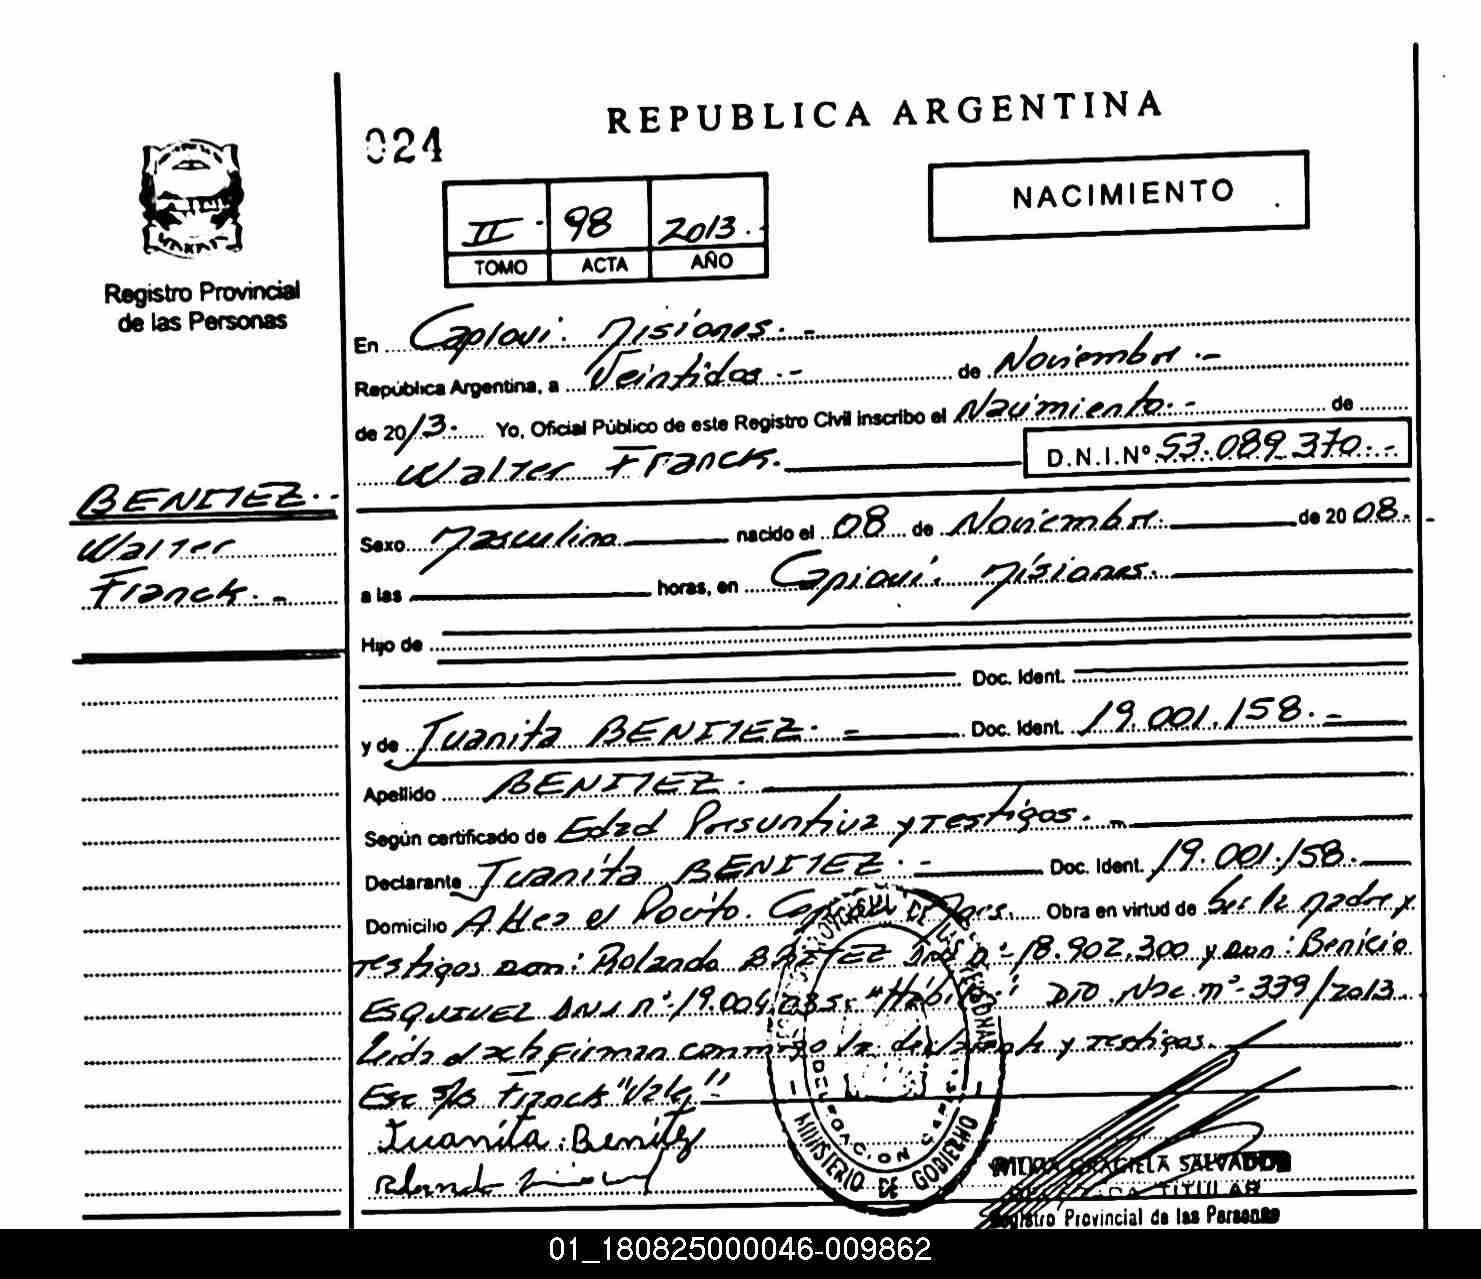 REPUBLICA ARGENTINA
024
NACIMIENTO
II 98 2013.-
TOMO ACTA AÑO
Registro Provincial
de las Personas
En Capiovi. Misiones.-
República Argentina, a Veintidos.- de Noviembre.-
de 2013.- Yo, Oficial Público de este Registro Civil inscribo el Nacimiento.- de
Walter Franck. D.N.I.Nº 53.089.370.-
BENITEZ.-
Walter
Franck.-
Sexo Masculino nacido el 08 de Noviembre. de 2008.-
a las horas, en Capiovi. Misiones.
Hijo de
Doc. Ident.
y de Juanita BENITEZ.- Doc. Ident. 19.001.158.-
Apellido BENITEZ.
Según certificado de Edad Presuntiva y Testigos.-
Declarante Juanita BENITEZ.- Doc. Ident. 19.001.158.-
Domicilio Aldea el Pocito. Obra en virtud de Ser la madre y
testigos Don: Rolando DNI nº-18.902.300 y Don: Benicio
ESQUIVEL DNI nº. "Hábil" DTO. Nac. nº-339/2013.
Leida el acta firman conmigo la declarante y testigos.
Esc s/b Franck "Vale"
Juanita Benitez
REGISTRO PROVINCIAL DE LAS PERSONAS
DELEGACION
MINISTERIO DE GOBIERNO
GRACIELA SALVADOR
TITULAR
Registro Provincial de las Personas
01_180825000046-009862